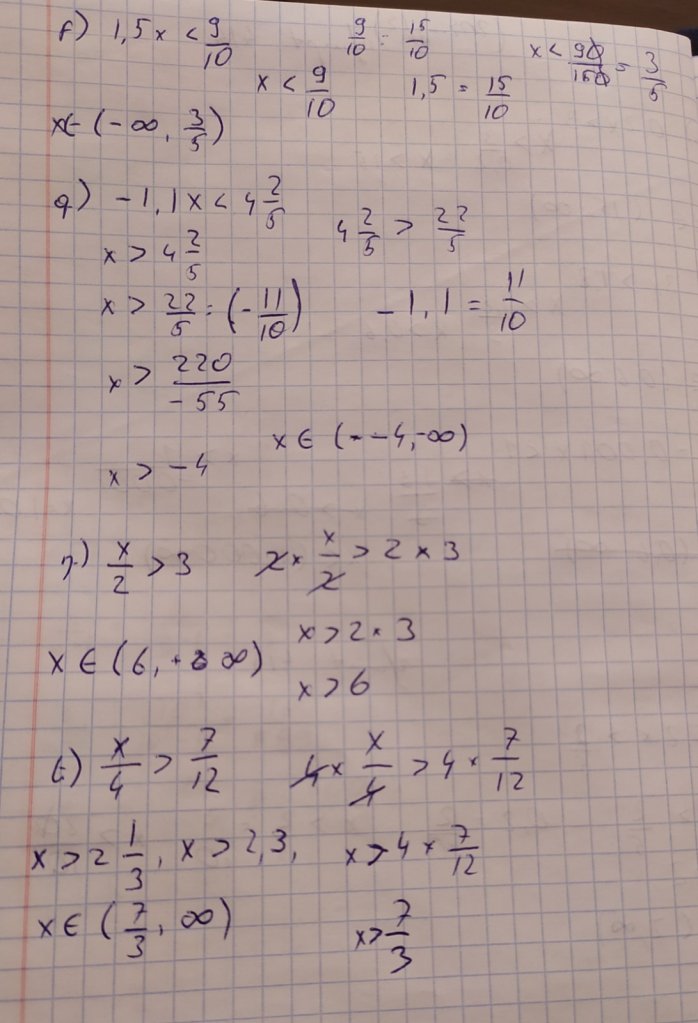 f) 1,5x < 9/10    9/10 : 15/10    x < 90/150 = 3/5
x < 9/10    1,5 = 15/10
x ∈ (-∞, 3/5)
g) -1,1x < 4 2/5    4 2/5 > 22/5
x > 4 2/5
x > 22/5 : (-11/10)    -1,1 = 11/10
x > 220/-55
x ∈ (--4,-∞)
x > -4
x/2 > 3    2 × x/2 > 2 × 3
x > 2 × 3
x ∈ (6, +∞)
x > 6
t) x/4 > 7/12    4 × x/4 > 4 × 7/12
x > 2 1/3, x > 2,3,    x > 4 × 7/12
x ∈ (7/3, ∞)    x > 7/3